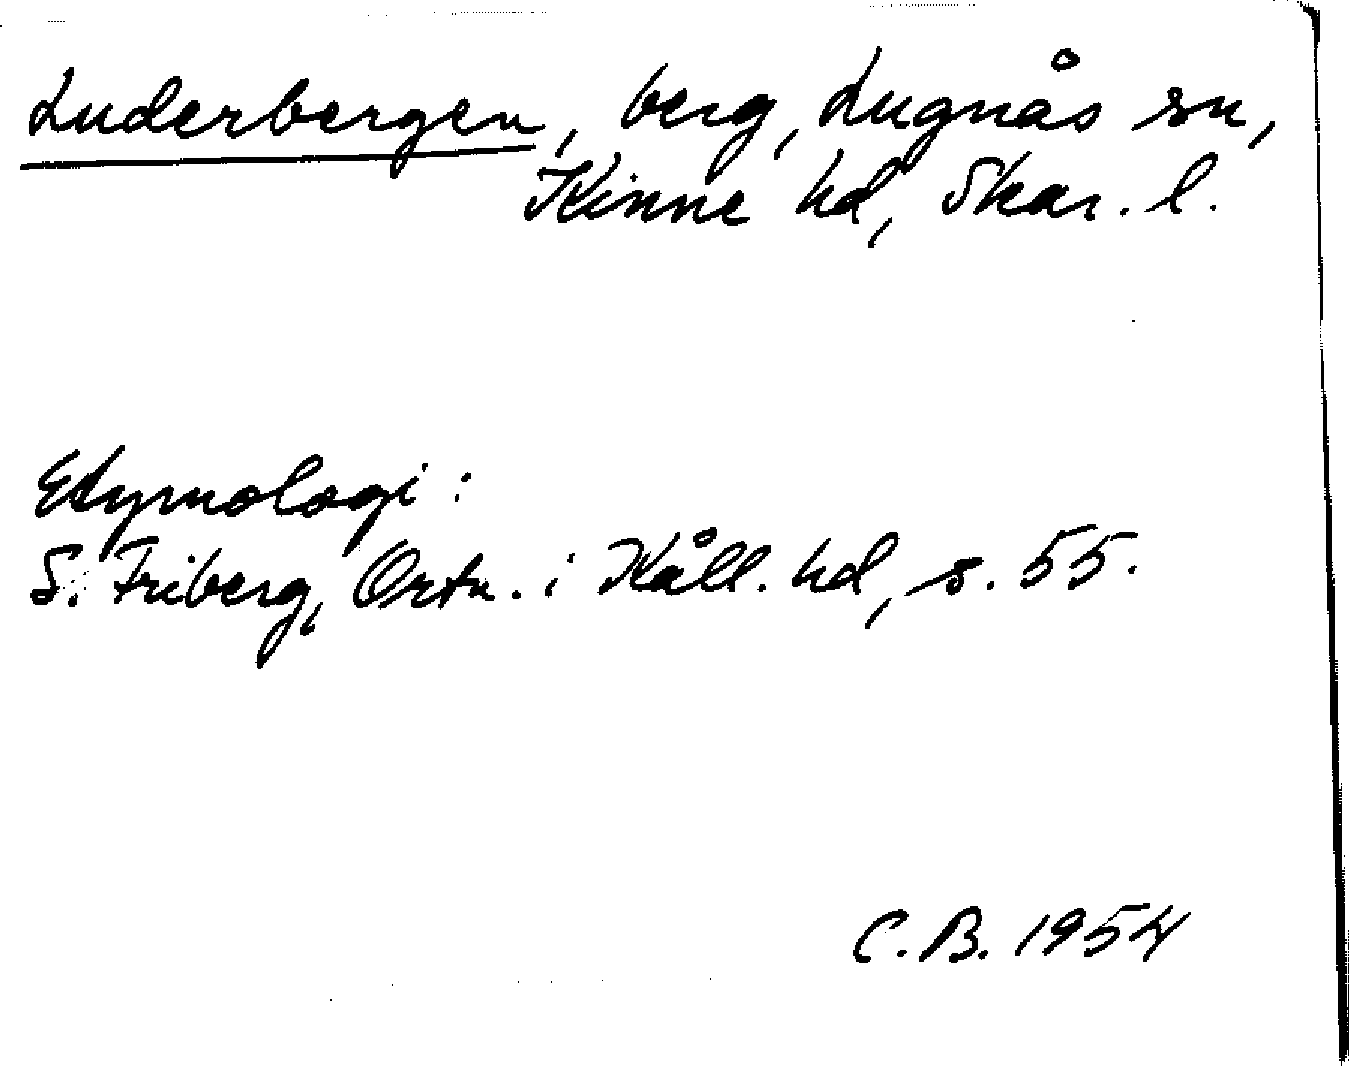 Luderbergen, berg, Lugnås sn,
Kinne hd, Skar. l.
Etymologi:
S. Friberg, Ortn. i Kåll. hd, s. 55.
C.B. 1954